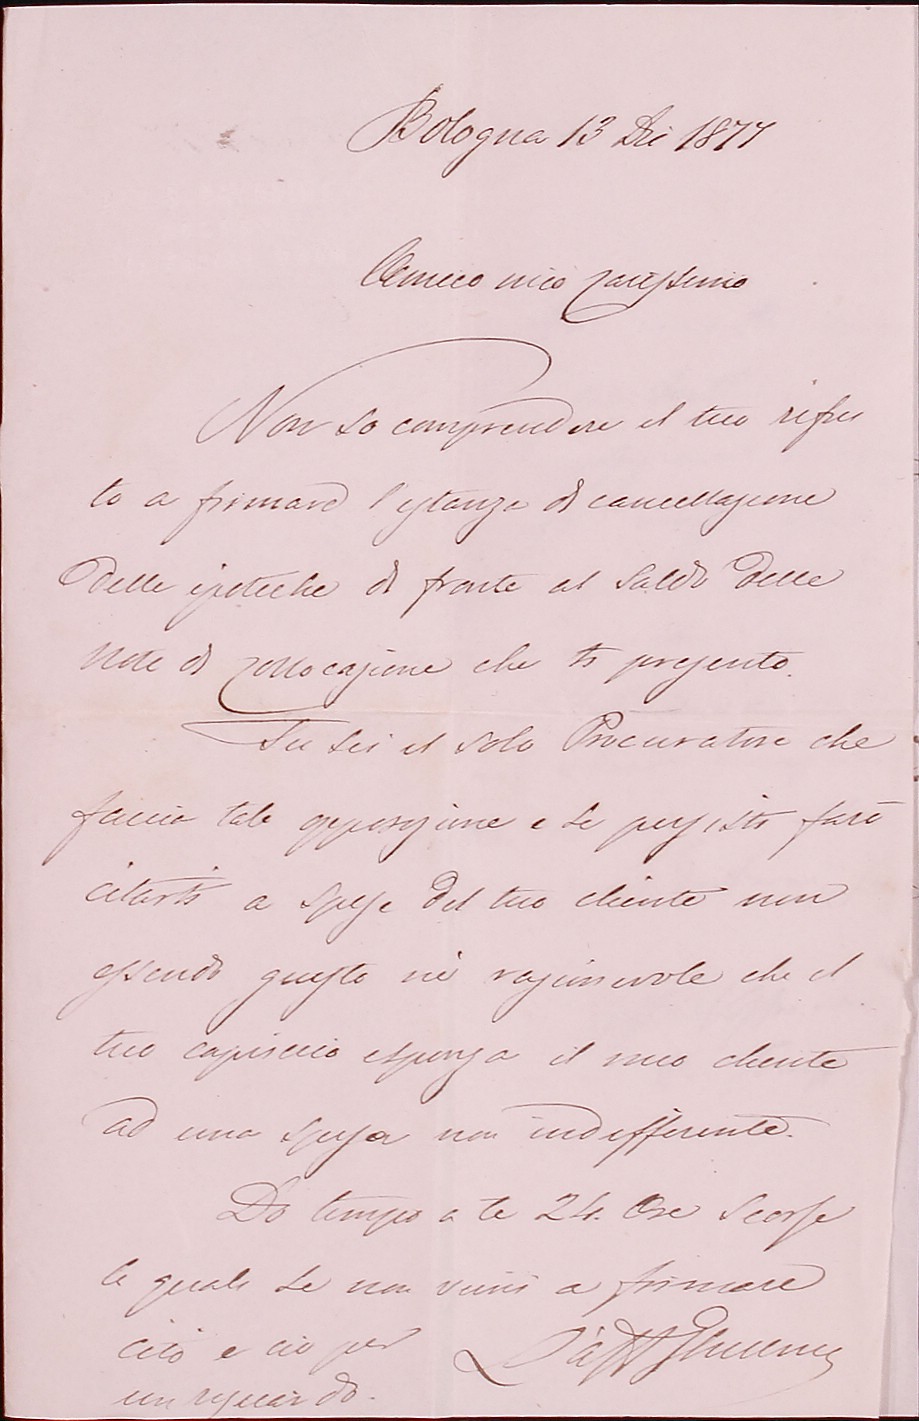 Bologna 13 Dic 1877
Amico mio carissimo
Non so comprendere il tuo rifiu
to a firmare l'istanza di cancellazione
delle ipoteche di fronte al saldo delle
note di collocazione che ti presento.
Tu sei il solo Procuratore che
faccia tale opposizione e se persisti farò
citarti a spese del tuo cliente non
essendo giusto nè ragionevole che il
tuo capriccio esponga il mio cliente
ad una spesa non indifferente.
Do tempo a te 24. Ore scorse
le quali se non vieni a firmare
cito e ciò per
un riguardo.